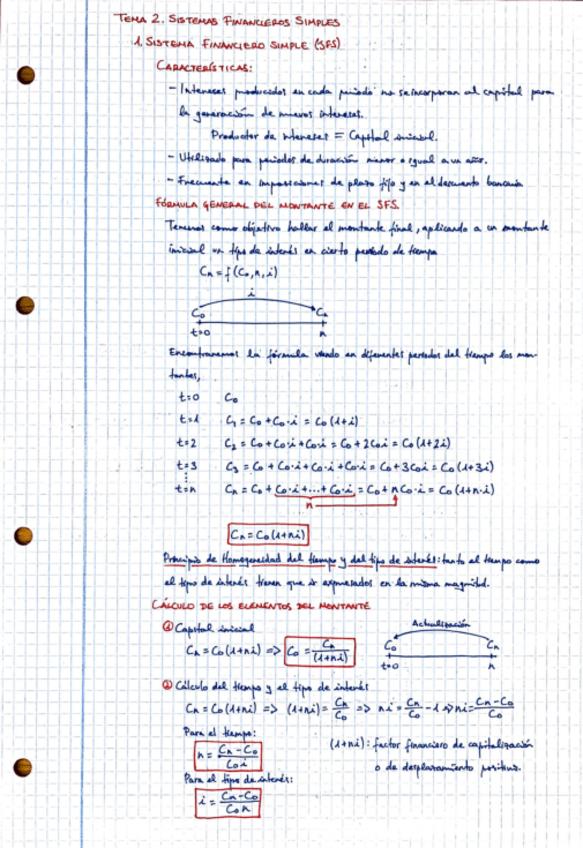 TEMA 2. SISTEMAS FINANCIEROS SIMPLES
1. SISTEMA FINANCIERO SIMPLE (SFS)
CARACTERÍSTICAS:
- Intereses producidos en cada periodo no se incorporan al capital para
la generación de nuevos intereses.
Productor de intereses = Capital inicial.
- Utilizado para periodos de duración menor o igual a un año.
- Frecuente en imposiciones de plazo fijo y en el descuento bancario
FÓRMULA GENERAL DEL MONTANTE EN EL SFS.
Tenemos como objetivo hallar el montante final, aplicando a un montante
inicial un tipo de interés en cierto periodo de tiempo
Cn = f (C0, n, i)
i
C0 Cn
t=0 n
Encontraremos la fórmula viendo en diferentes periodos del tiempo los mon-
tantes,
t=0 C0
t=1 C1 = C0 + C0·i = C0 (1+i)
t=2 C2 = C0 + C0·i + C0·i = C0 + 2C0i = C0 (1+2i)
t=3 C3 = C0 + C0·i + C0·i + C0·i = C0 + 3C0i = C0 (1+3i)
⋮
t=n Cn = C0 + C0·i + ... + C0·i = C0 + nC0·i = C0 (1+n·i)
n
Cn = C0 (1+ni)
Principio de Homogeneidad del tiempo y del tipo de interés: tanto el tiempo como
el tipo de interés tienen que ir expresados en la misma magnitud.
CÁLCULO DE LOS ELEMENTOS DEL MONTANTE
① Capital inicial
Cn = C0 (1+ni) => C0 = Cn/(1+ni)
Actualización
C0 Cn
t=0 n
② Cálculo del tiempo y el tipo de interés
Cn = C0 (1+ni) => (1+ni) = Cn/C0 => ni = Cn/C0 - 1 => ni = Cn-C0/C0
Para el tiempo:
n = Cn-C0/C0i
(1+ni): factor financiero de capitalización
o de desplazamiento positivo.
Para el tipo de interés:
i = Cn-C0/C0n